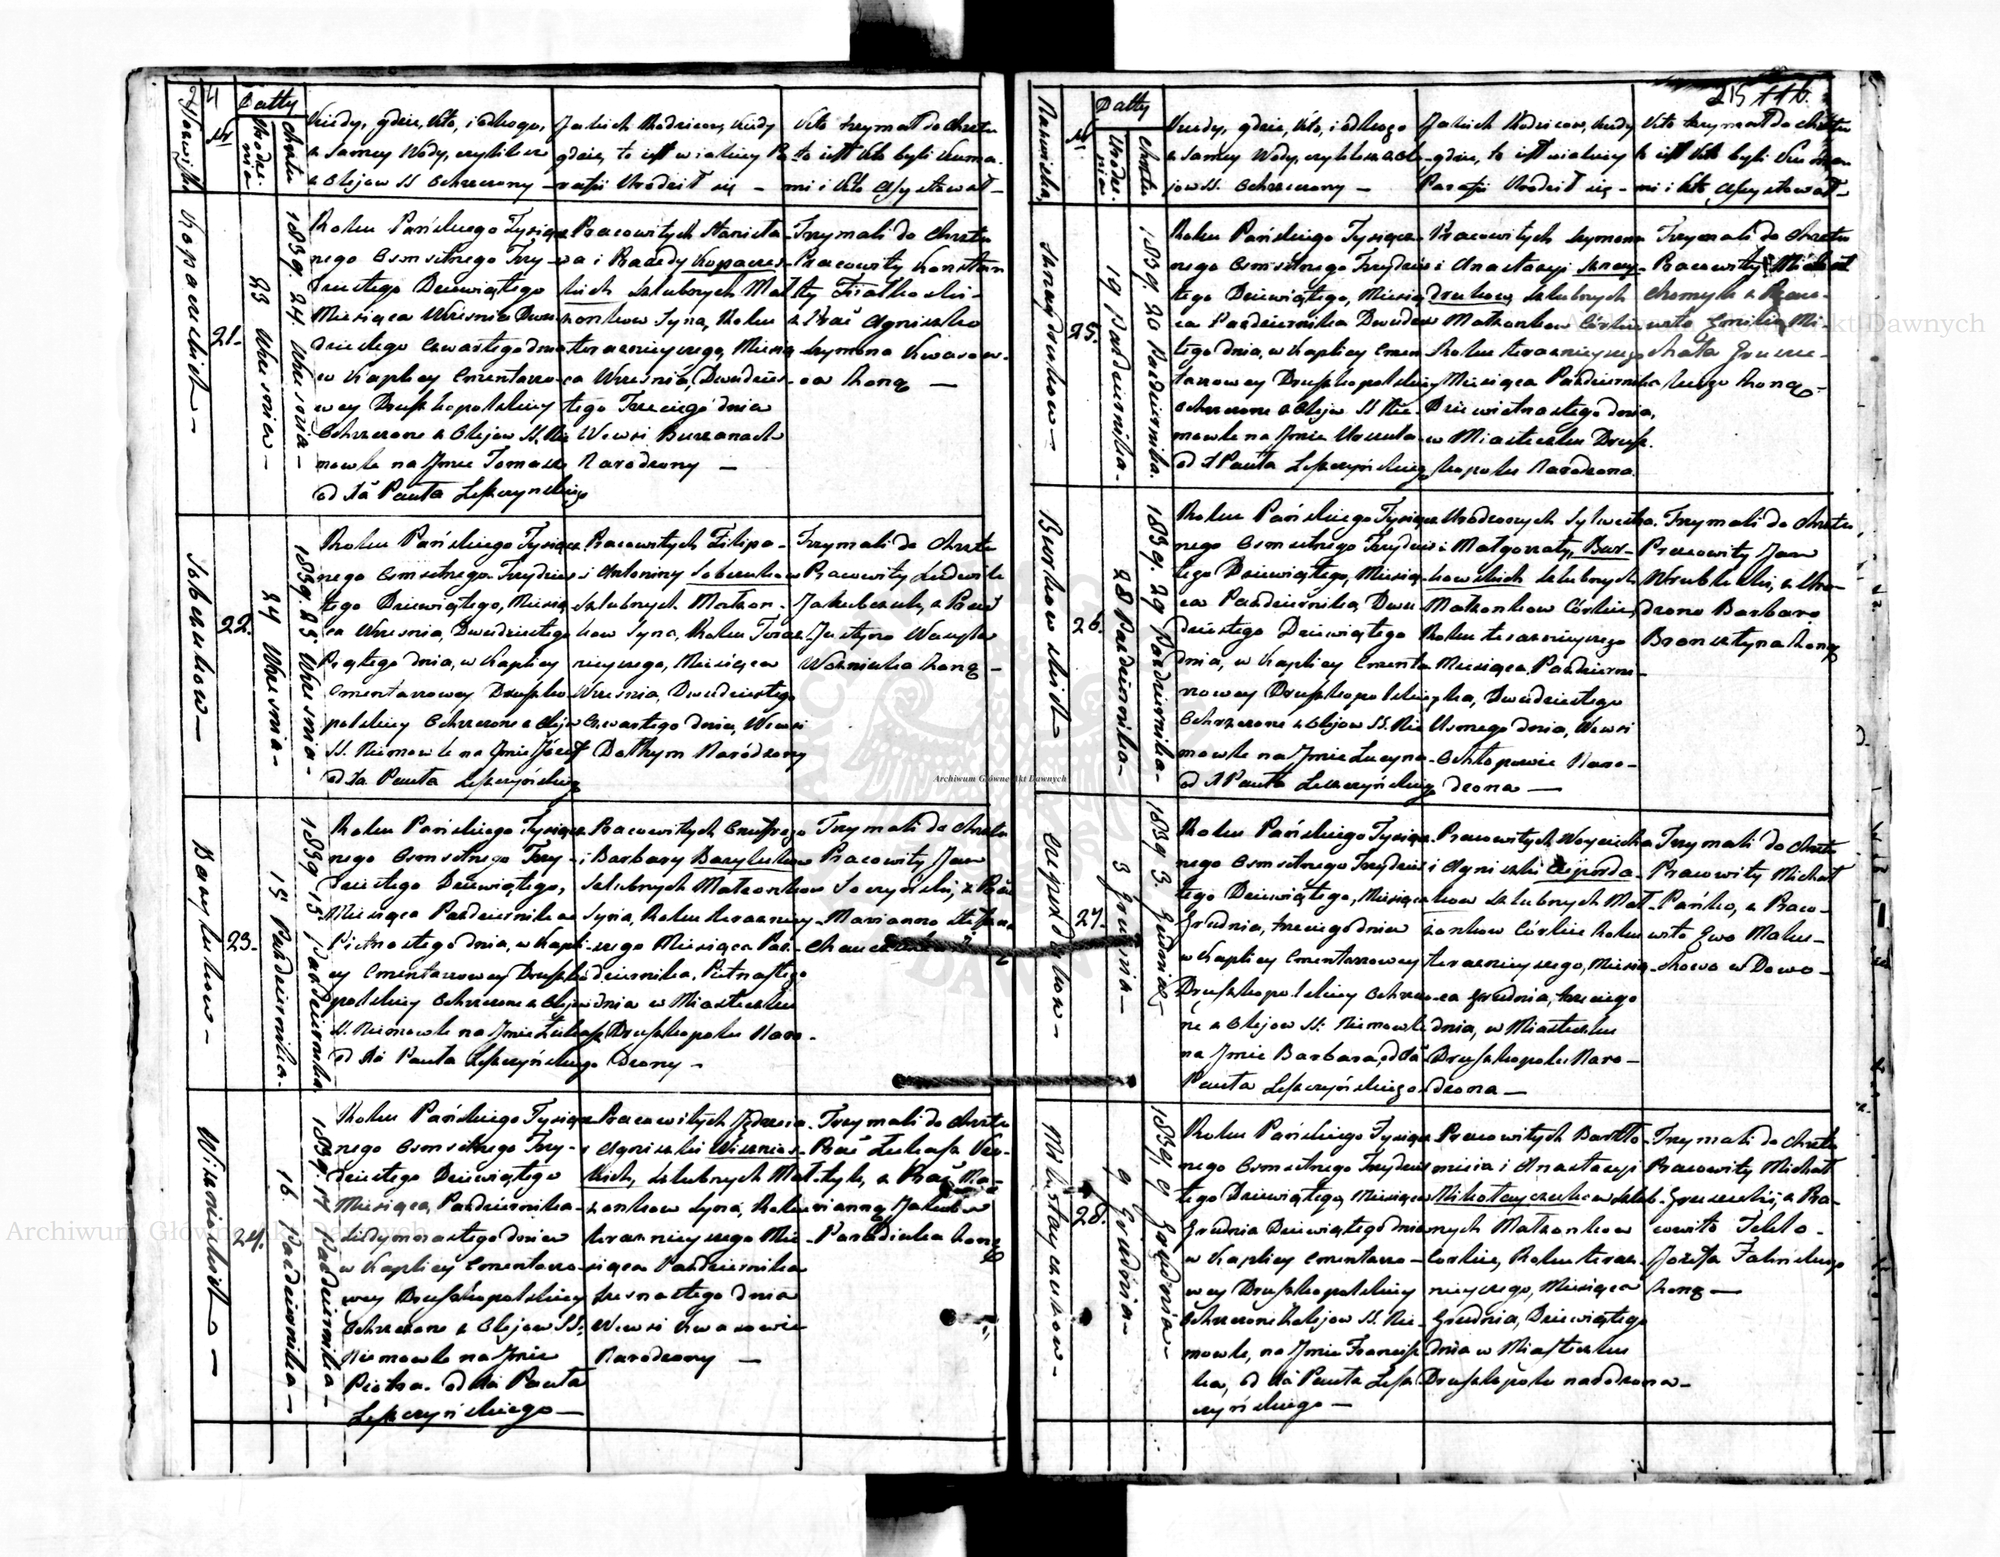 24
Nazwiska
Nr
Datty
Urodze-
nia
Chrztu
Kiedy, gdzie, kto, i od kogo,
z samey Wody, czyli też
z Olejow SS. Ochrzczony —
Jakich Rodzicow, kiedy
gdzie, to iest w iakiey Pa
rafii Urodził się —
Kto trzymał do Chrztu
to iest kto byli Kuma-
mi i kto Assystował —
Kopaeckich —
21.
23 Wrzesnia —
1839. 24. Wrzesnia —
Roku Pańskiego Tysiącz-
nego Osmsetnego Trzy-
dziestego Dziewiątego
Miesiąca Wrzesnia Dwu
dziestego Czwartego dnia
w Kaplicy Cmentarzo-
wey Druszkopolskiey
Ochrzczone z Olejow SS. Nie
mowle na Jmie Tomasz
od Xa Pawła Leszczynskiego
Pracowitych Stanisła-
wa i
ckich szlubnych Mał-
żonkow Syna, Roku
teraznieyszego, Miesią-
ca Wrzesnia, Dwudzies-
tego Trzeciego dnia
Wewsi
Narodzony —
Trzymali do Chrztu
Pracowity Konstan
ty Fiałkoski
z Prac Agnieszko
Szymona
wa Żoną —
Soberukow —
22.
24 Wrzesnia —
1839. 25. Wrzesnia —
Roku Pańskiego Tysiącz-
nego Osmsetnego Trzydzies
tego Dziewiątego, Miesią-
ca Wrzesnia, Dwudziestego
Piątego dnia, w Kaplicy
Cmentarzowey Druszko-
polskiey Ochrzczone z Olejow
SS. Niemowle na Jmie Józef
od Xa Pawła Leszczyńskiego
Pracowitych Filipa-
i Antoniny
szlubnych Małżon-
kow Syna, Roku Teraz-
nieyszego, Miesiąca
Wrzesnia, Dwudziestego
Czwartego dnia, Wewsi
Narodzony
Trzymali do Chrztu
Pracowity Ludwik
Jakubczuk, z Prac
Justyno Wasyla
Wozniuka Żoną —
Barylukow —
23.
15 Pazdziernika —
1839 15 Pazdziernika
Roku Pańskiego Tysiącz-
nego Osmsetnego Trzy-
dziestego Dziewiątego,
Miesiąca Pazdziernika
Piętnastego dnia, w Kapli-
cy Cmentarzowey Druszko
polskiey Ochrzczone z Olejow
SS. Niemowle na Jmie Łukasz
od Xa Pawła Leszczyńskiego
Pracowitych Onufrego
i Barbary Barylukow
szlubnych Małżonkow
Syna, Roku teraznieyszego
Miesiąca Paz-
dziernika, Pietnastego
dnia w Miasteczku
Druszkopolu Naro-
dzony —
Trzymali do Chrztu
Pracowity Jan
z Prac
Marianno
Wisnioskich —
24.
16. Pazdziernika —
1839. 17 Pazdziernika —
Roku Pańskiego Tysiącz-
nego Osmsetnego Trzy-
dziestego Dziewiątego
Miesiąca, Pazdziernika
Siedymnastego dnia
w Kaplicy Cmentarzo-
wey Druszkopolskiey
Ochrzczone z Olejow SS.
Niemowle na Jmie
Piotra. od Xa Pawła
Leszczyńskiego —
Pracowitych Jędrzeia
i Agnieszki Wisnios-
kich, szlubnych Mał-
żonkow Syna, Roku
teraznieyszego Mie-
siąca Pazdziernika
Szesnastego dnia
Wewsi Kwasowie
Narodzony —
Trzymali do Chrztu
Prac Łukasz
z Prac Ma-
rianną Jakubo
Żoną
215 116.
Nazwiska
Nr
Datty
Urodze-
nia
Chrztu
Kiedy, gdzie, kto, i od kogo
z samey Wody, czyli też z Ole
jow SS. Ochrzczony —
Jakich Rodzicow, kiedy
gdzie, to iest w iakiey
Parafii Urodził się —
Kto trzymał do Chrztu
to iest kto byli Kuma
mi i kto Assystował —
25.
19 Pazdziernika —
1839. 20 Pazdziernika.
Roku Pańskiego Tysiącz-
nego Osmsetnego Trzydzies
tego Dziewiątego, Miesią
ca Pazdziernika Dwudzies
tego dnia, w Kaplicy Cmen
tarzowey Druszkopolskiey
Ochrzczone z Olejow SS Nie-
mowle na Jmie Urszula
od X Pawła Leszczyńskiego
Pracowitych Szymona
i Anastazyi
szlubnych
Małżonkow Córka
Roku teraznieyszego
Miesiąca Pazdziernika
Dziewietnastego dnia,
w Miasteczku Drusz-
kopolu Narodzona.
Trzymali do Chrztu
Pracowity Michał
z Praco-
wito Emilią Mi-
chała
Żoną —
Burkowskich
26.
28 Pazdziernika —
1839. 29 Pazdziernika —
Roku Pańskiego Tysiącz-
nego Osmsetnego Trzydzies
tego Dziewiątego, Miesią-
ca Pazdziernika, Dwu-
dziestego Dziewiątego
dnia, w Kaplicy Cmenta
rzowey Druszkopolskiey
Ochrzczone z Olejow SS. Nie
mowle na Jmie Lucyna
od X Pawła Leszczyńskiego
Urodzonych Sylwestra
i Małgorzaty, Bur-
kowskich szlubnych
Małżonkow Córka,
Roku teraznieyszego
Miesiąca, Pazdzierni-
ka, Dwudziestego
Usmego dnia, Wewsi
Ochłopowie Naro-
dzona —
Trzymali do Chrztu
Pracowity Jan
Wrubleski, z Uro-
dzono Barbaro
Bronsztyna Żoną
27.
3 Grudnia —
1839 3. Grudnia
Roku Pańskiego Tysiącz-
nego Osmsetnego Trzydzies
tego Dziewiątego, Miesiąca
Grudnia, trzeciego dnia
w Kaplicy Cmentarzowey
Druszkopolskiey Ochrzczo-
ne z Olejow SS. Niemowle
na Jmie Barbara, od Xa
Pawła Leszczyńskiego
Pracowitych, Woyciecha
i Agnieszki
kow szlubnych Mał-
żonkow Córka Roku
teraznieyszego, Miesią-
ca Grudnia, trzeciego
dnia, w Miasteczku
Druszkopolu Naro-
dzona —
Trzymali do Chrztu
Pracowity Michał
Pańko, z Praco-
wito Ewo
Wdowo —
Mikołayczukow —
28.
9 Grudnia —
1839, 9 Grudnia —
Roku Pańskiego Tysiącz-
nego Osmsetnego Trzydzies
tego Dziewiątego, Miesiąca
Grudnia Dziewiątego dnia
w Kaplicy Cmentarzo-
wey Druszkopolskiey
Ochrzczone z Olejow SS. Nie-
mowle, na Jmie Francisz
ka, od Xa Pawła Leszcz
czyńskiego —
Pracowitych Bartło-
mieia i Anastazyi
Mikołayczukow szlub-
nych Małżonkow
Corka, Roku teraz-
nieyszego, Miesiąca
Grudnia, Dziewiątego
dnia w Miasteczku
Druszkopolu narodzona —
Trzymali do Chrztu
Pracowity Michał
z Pra-
cowito Teklo —
Józefa Falinskiego
Żoną —
Archiwum Główne Akt Dawnych
Archiwum Główne Akt Dawnych
Archiwum Główne Akt Dawnych